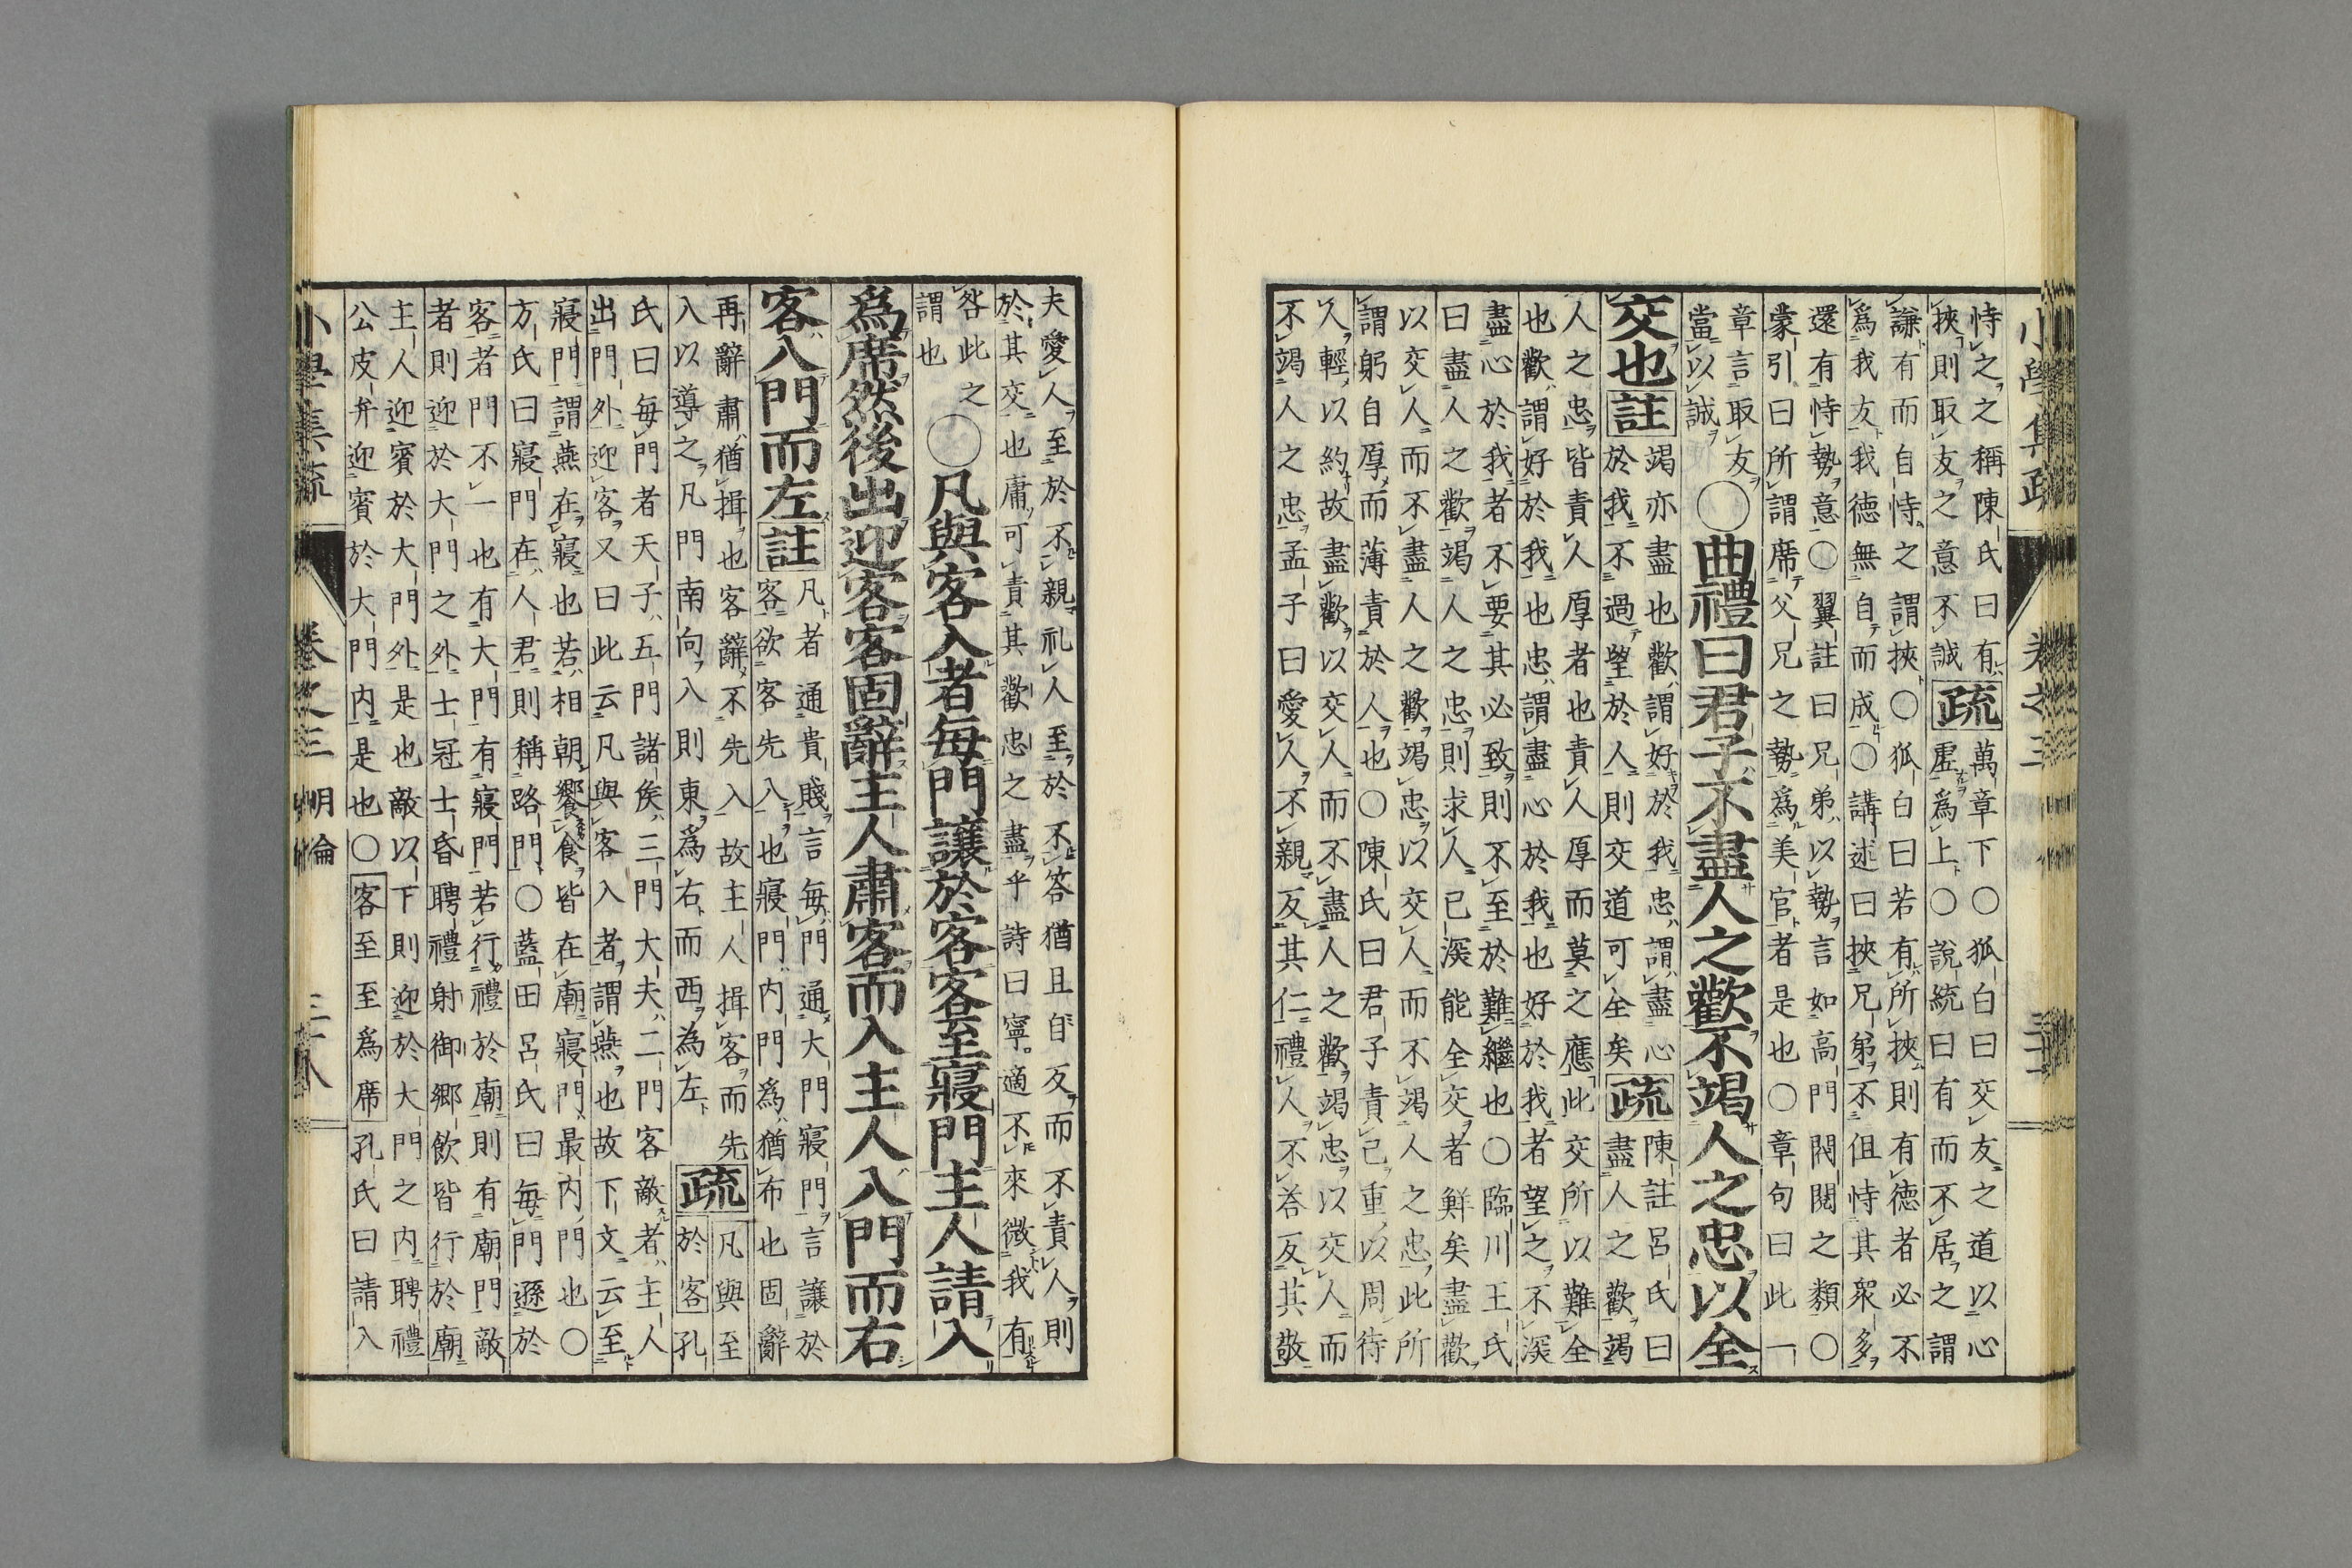 小學集疏 卷之三
恃之之稱陳氏曰有
疏
萬章下〇狐白曰交友之道以心
挾則取友之意不誠
虛爲上〇說統曰有而不居之謂
謙有而自恃之謂挾〇狐白曰若有所挾則有徳者必不
爲我友我徳無自而成〇講述曰挾兄弟不但恃其衆多
還有恃勢意〇翼註曰兄弟以勢言如高門閥閱之類〇
蒙引曰所謂席父兄之勢爲美官者是也〇章句曰此一
章言取友
當以誠
〇曲禮曰君子不盡人之歡不竭人之忠以全
交也註
竭亦盡也歡謂好於我忠謂盡心
於我不過望於人則交道可全矣
疏
陳註呂氏曰
盡人之歡竭
人之忠皆責人厚者也責人厚而莫之應此交所以難全
也歡謂好於我也忠謂盡心於我也好於我者望之不深
盡心於我者不要其必致則不至於難繼也〇臨川王氏
曰盡人之歡竭人之忠則求人已深能全交者鮮矣盡歡
以交人而不盡人之歡竭忠以交人而不竭人之忠此所
謂躬自厚而薄責於人也〇陳氏曰君子責己重以周待
人輕以約故盡歡以交人而不盡人之歡竭忠以交人而
不竭人之忠孟子曰愛人不親反其仁禮人不荅反其敬
夫愛人至於不親礼人至於不答猶且自反而不責人則
於其交也庸可責其歡忠之盡乎詩曰寧適不來微我有
咎此之
謂也
〇凡與客入者每門讓於客客至寢門主人請入
爲席然後出迎客客固辭主人肅客而入主人入門而右
客入門而左註
凡者通貴賤言每門通大門寢門言讓於
客欲客先入也寢門內門爲猶布也固辭
再辭肅猶揖也客辭不先入故主人揖客而先
入以導之凡門南向入則東爲右而西為左
疏
凡與至
於客孔
氏曰每門者天子五門諸侯三門大夫二門客敵者主人
出門外迎客又曰此云凡與客入者謂燕也故下文云至
寢門謂燕在寢也若相朝饗食皆在廟寢門最內門也〇
方氏曰寢門在人君則稱路門〇藍田呂氏曰每門遜於
客者門不一也有大門有寢門若行禮於廟則有廟門敵
者則迎於大門之外士冠士昏聘禮射御鄉飲皆行於廟
主人迎賓於大門外是也敵以下則迎於大門之內聘禮
公皮弁迎賓於大門内是也〇客至至爲席孔氏曰請入
小學集疏 卷之三 明倫 三十八